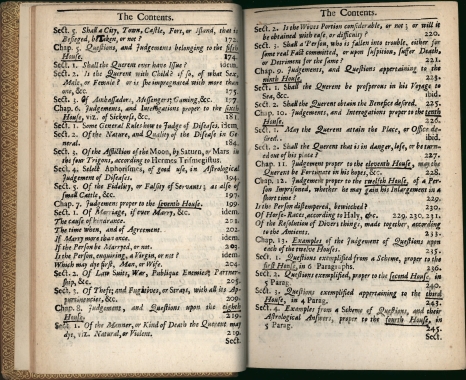 The Contents.
Sect. 5. Shall a City, Town, Castle, Fort, or Island, that is
Besieged, be Taken, or not? 172.
Chap. 5. Questions, and Judgements belonging to the fifth
House. 174.
Sect. 1. Shall the Querent ever have Issue? idem.
Sect. 2. Is the Querent with Child? if so, of what Sex,
Male, or Female? or is she impregnated with more than
one, &c. 175.
Sect. 3. Of Ambassadors, Messengers; Gaming, &c. 177.
Chap. 6. Judgements, and Interogations proper to the sixth
House, viz. of Sickness, &c. 181.
Sect. 1. Some General Rules how to Judge of Diseases. idem.
Sect. 2. Of the Nature, and Quality of the Disease in Ge-
neral. 184.
Sect. 3. Of the Affliction of the Moon, by Saturn, or Mars in
the four Trigons, according to Hermes Trismegistus.
Sect. 4. Select Aphorismes, of good use, in Astrological
Judgement of Diseases. 194.
Sect. 5. Of the Fidelity, or Falsity of Servants; as also of
small Cattle, &c. 197.
Chap. 7. Judgement proper to the seventh House. 199.
Sect. 1. Of Marriage, if ever Marry, &c. idem.
The cause of hinderance.
The time when, and of Agreement. 202.
If Marry more than once. idem.
If the Person be Marryed, or not. 203.
Is the Person, enquiring, a Virgin, or not? idem.
Which may dye first, Man, or Wife. 204.
Sect. 2. Of Law Suits, War, Publique Enemies; Partner-
ship, &c. 205.
Sect. 3. Of Thefts; and Fugitives, or Strays, with all its Ap-
purtinencies, &c. 209.
Chap. 8. Judgements, and Questions upon the eighth
House. 219.
Sect. 1. Of the Manner, or Kind of Death the Querent may
dye, viz. Natural, or Violent. 219.
Sect.
The Contents.
Sect. 2. Is the Wives Portion considerable, or not; or will it
be obtained with ease, or difficulty? 220.
Sect. 3. Shall a Person, who is fallen into trouble, either for
some real Fact committed, or upon suspicion, suffer Death,
or Detriment for the same? 221.
Chap. 9. Judgements, and Questions appertaining to the
ninth House. 223.
Sect. 1. Shall the Querent be prosperous in his Voyage to
Sea, &c. ibid.
Sect. 2. Shall the Querent obtain the Benefice desired. 225.
Chap. 10. Judgements, and Interogations proper to the tenth
House. 226.
Sect. 1. May the Querent attain the Place, or Office de-
sired. ibid.
Sect. 2. Shall the Querent that is in danger, lose, or be turn-
ed out of his place? 227.
Chap. 11. Judgement proper to the eleventh House, may the
Querent be Fortunate in his hopes, &c. 228.
Chap. 12. Judgement proper to the twelfth House, of a Per-
son Imprisoned, whether he may gain his Inlargement in a
short time? 229.
Is the Person distempered, bewitched? 230.
Of Horse-Races, according to Haly, &c. 229, 230, 231.
Of the Resolution of Divers things, made together, according
to the Antients. 233.
Chap. 13. Examples of the Judgement of Questions upon
each of the twelve Houses. 235.
Sect. 1. Questions exemplified from a Scheme, proper to the
first House, in 6 Paragraphs. 236.
Sect. 2. Questions exemplified, proper to the second House, in
5 Parag. 240.
Sect. 3. Questions exemplified appertaining to the third
House, in 4 Parag. 243.
Sect. 4. Examples from a Scheme of Questions, and their
Astrological Answers, proper to the fourth House, in
5 Parag. 245.
Sect.